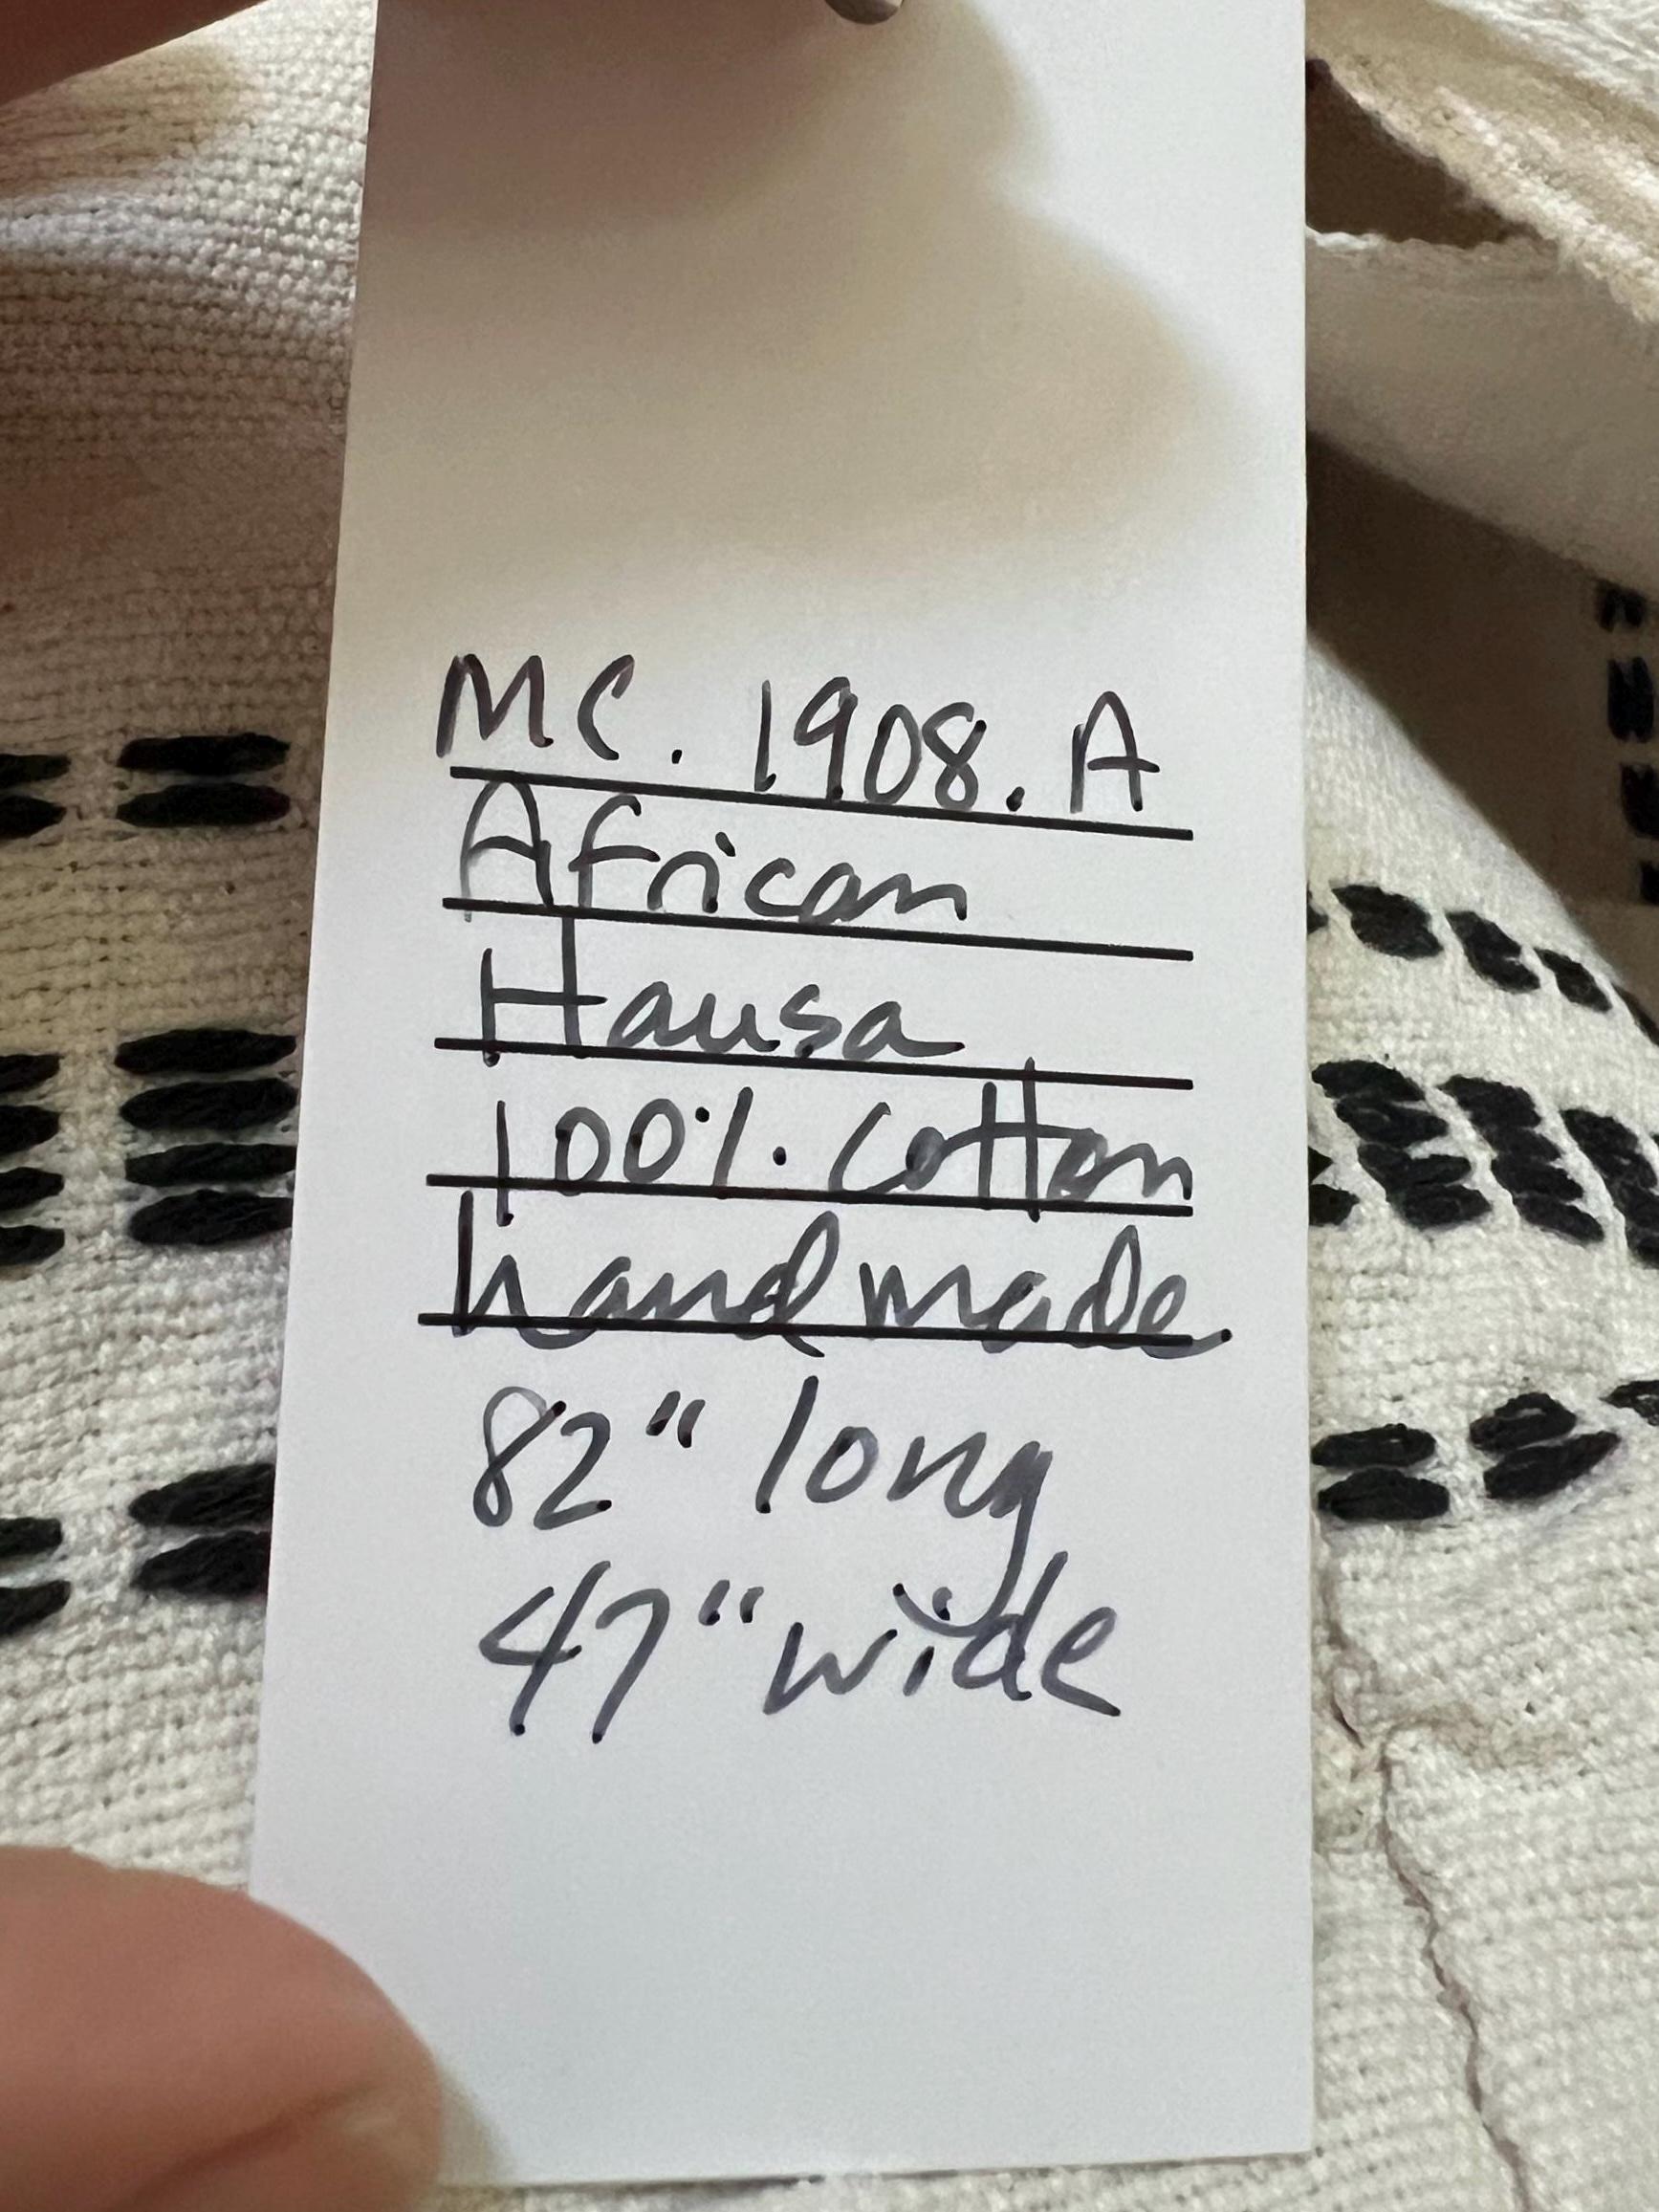 MC. 1908. A
African
Hausa
100%. Cotton
handmade
82" long
47" wide